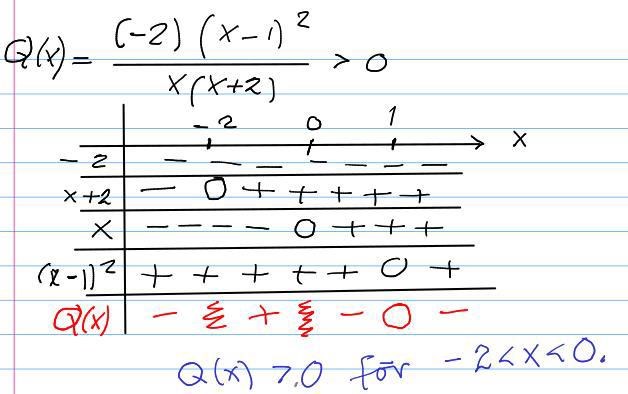 Q(x) = (-2)(x-1)² / x(x+2) > 0
-2 0 1 x
-2 - - - - - - -
x+2 - 0 + + + + +
x - - - - 0 + + +
(x-1)² + + + + + 0 +
Q(x) - ξ + ξ - 0 -
Q(x) > 0 för -2<x<0.